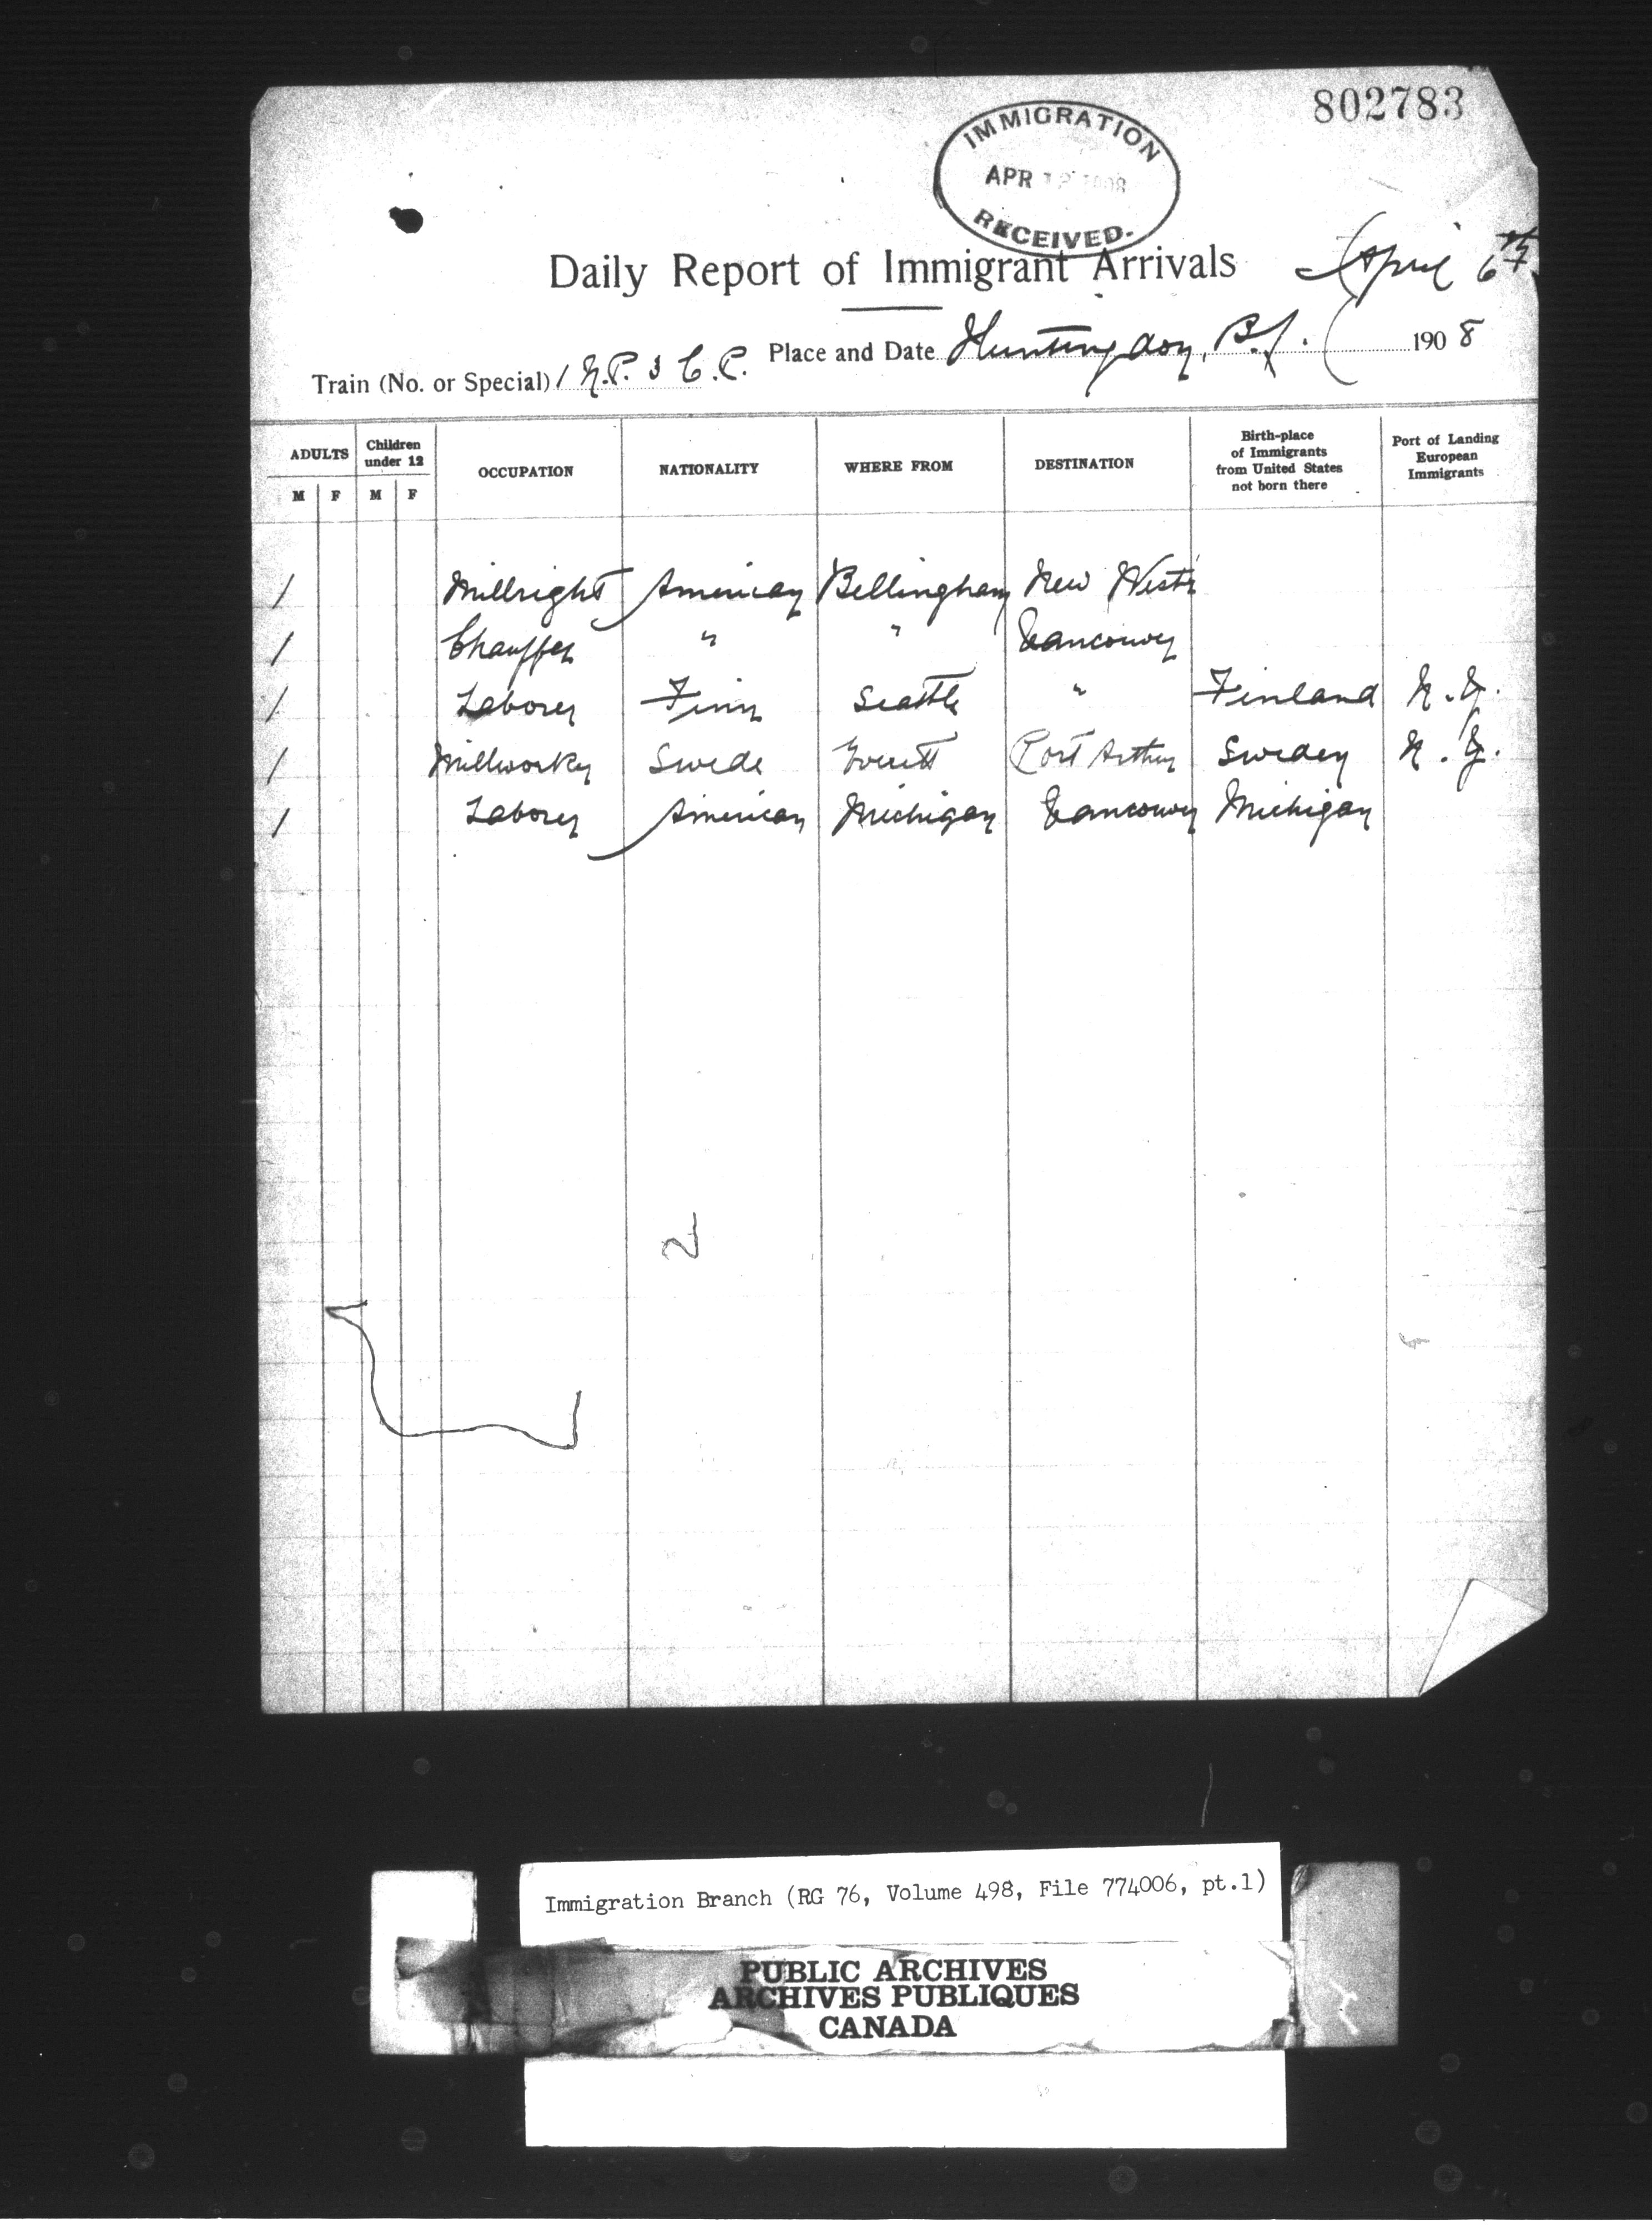 802783
IMMIGRATION
APR 1908
RECEIVED.
Daily Report of Immigrant Arrivals April 6th
Place and Date Huntingdon, B.C. 1908
Train (No. or Special) N.P. & C.P.
ADULTS Children under 12 OCCUPATION NATIONALITY WHERE FROM DESTINATION Birth-place of Immigrants from United States not born there Port of Landing European Immigrants
M F M F
1 Millright American Bellingham New Westr
1 Chauffer " " Vancouver
1 Laborer Finn Seattle " Finland N.Y.
1 Millworker Swede Everett Port Arthur Sweden N.Y.
1 Laborer American Michigan Vancouver Michigan
2
Immigration Branch (RG 76, Volume 498, File 774006, pt.1)
PUBLIC ARCHIVES
ARCHIVES PUBLIQUES
CANADA